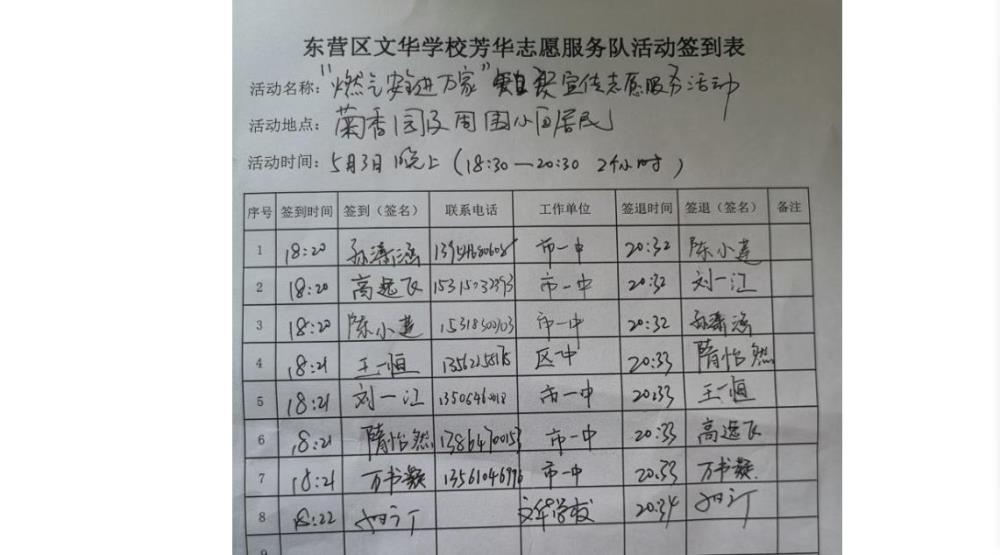 东营区文华学校芳华志愿服务队活动签到表
活动名称：“燃气安全进万家”宣传志愿服务活动
活动地点：菊香园及周围小区居民
活动时间：5月3日晚上（18:30—20:30 2个小时）
序号 签到时间 签到（签名） 联系电话 工作单位 签退时间 签退（签名） 备注
1 18:20 孙潇涵 市一中 20:32 陈小莲
2 18:20 高逸飞 市一中 20:32 刘一江
3 18:20 陈小莲 市一中 20:32 孙潇涵
4 18:21 王一恒 区中 20:33 隋怡然
5 18:21 刘一江 市一中 20:33 王一恒
6 18:21 隋怡然 13864700153 市一中 20:33 高逸飞
7 18:21 万书凝 13561046996 市一中 20:33 万书凝
8 18:22 文华学校 20:34